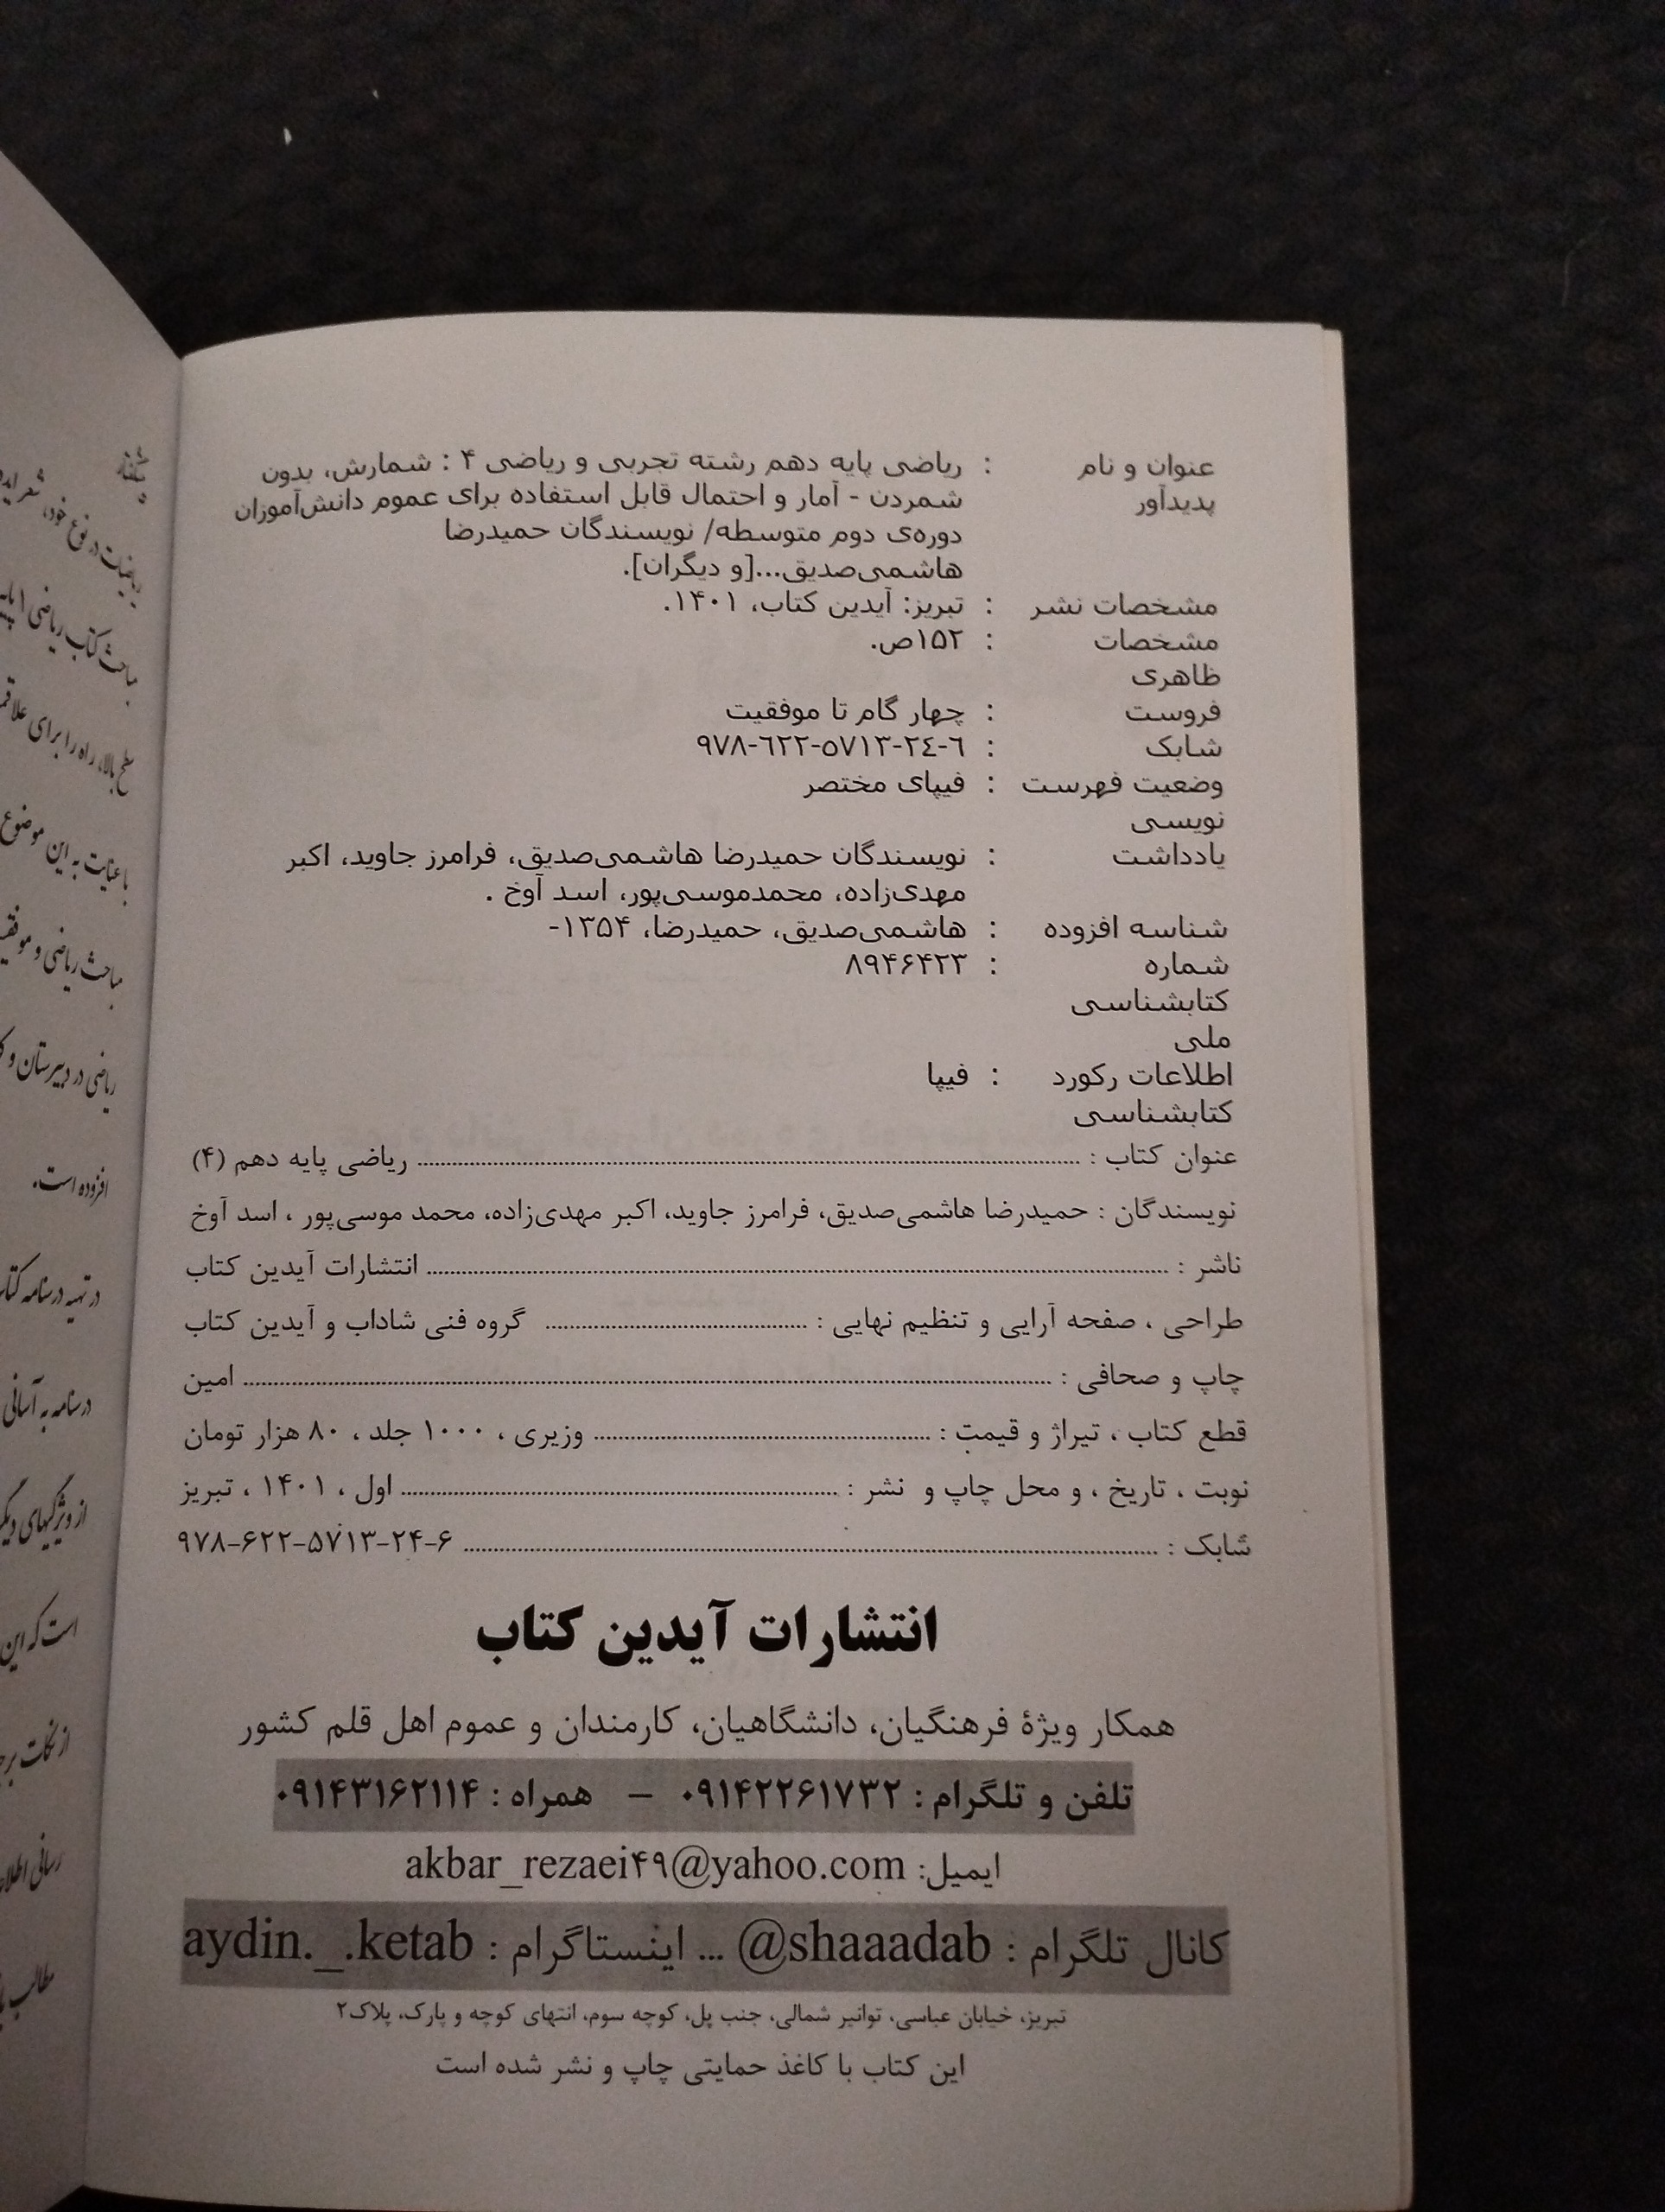 عنوان و نام : ریاضی پایه دهم رشته تجربی و ریاضی ۴ : شمارش، بدون
پدیدآور شمردن - آمار و احتمال قابل استفاده برای عموم دانش‌آموزان
دوره‌ی دوم متوسطه/ نویسندگان حمیدرضا
هاشمی‌صدیق...[و دیگران].
مشخصات نشر : تبریز: آیدین کتاب، ۱۴۰۱.
مشخصات : ۱۵۲ص.
ظاهری
فروست : چهار گام تا موفقیت
شابک : ۹۷۸-٦۲۲-٥۷۱۳-۲٤-٦
وضعیت فهرست : فیپای مختصر
نویسی
یادداشت : نویسندگان حمیدرضا هاشمی‌صدیق، فرامرز جاوید، اکبر
مهدی‌زاده، محمدموسی‌پور، اسد آوخ .
شناسه افزوده : هاشمی‌صدیق، حمیدرضا، ۱۳۵۴-
شماره : ۸۹۴۶۴۲۳
کتابشناسی
ملی
اطلاعات رکورد : فیپا
کتابشناسی
عنوان کتاب : ........ ریاضی پایه دهم (۴)
نویسندگان : حمیدرضا هاشمی‌صدیق، فرامرز جاوید، اکبر مهدی‌زاده، محمد موسی‌پور ، اسد آوخ
ناشر : ........ انتشارات آیدین کتاب
طراحی ، صفحه آرایی و تنظیم نهایی : ........ گروه فنی شاداب و آیدین کتاب
چاپ و صحافی : ........ امین
قطع کتاب ، تیراژ و قیمت : ........ وزیری ، ۱۰۰۰ جلد ، ۸۰ هزار تومان
نوبت ، تاریخ ، و محل چاپ و نشر : ........ اول ، ۱۴۰۱ ، تبریز
شابک : ........ ۹۷۸-۶۲۲-۵۷۱۳-۲۴-۶
انتشارات آیدین کتاب
همکار ویژهٔ فرهنگیان، دانشگاهیان، کارمندان و عموم اهل قلم کشور
تلفن و تلگرام : ۰۹۱۴۲۲۶۱۷۳۲ – همراه : ۰۹۱۴۳۱۶۲۱۱۴
ایمیل: akbar_rezaei۴۹@yahoo.com
کانال تلگرام : @shaaadab ... اینستاگرام : aydin._.ketab
تبریز، خیابان عباسی، توانیر شمالی، جنب پل، کوچه سوم، انتهای کوچه و پارک، پلاک۲
این کتاب با کاغذ حمایتی چاپ و نشر شده است
مباحث کتاب ریاضی ۱
سطح بالا، راه را برای
با عنایت به این موضوع
مباحث ریاضی و
ریاضی در دبیرستان و
افزوده است.
در تهیه درسنامه
درسنامه به آسانی
از ویژگیهای
است که این
از نکات